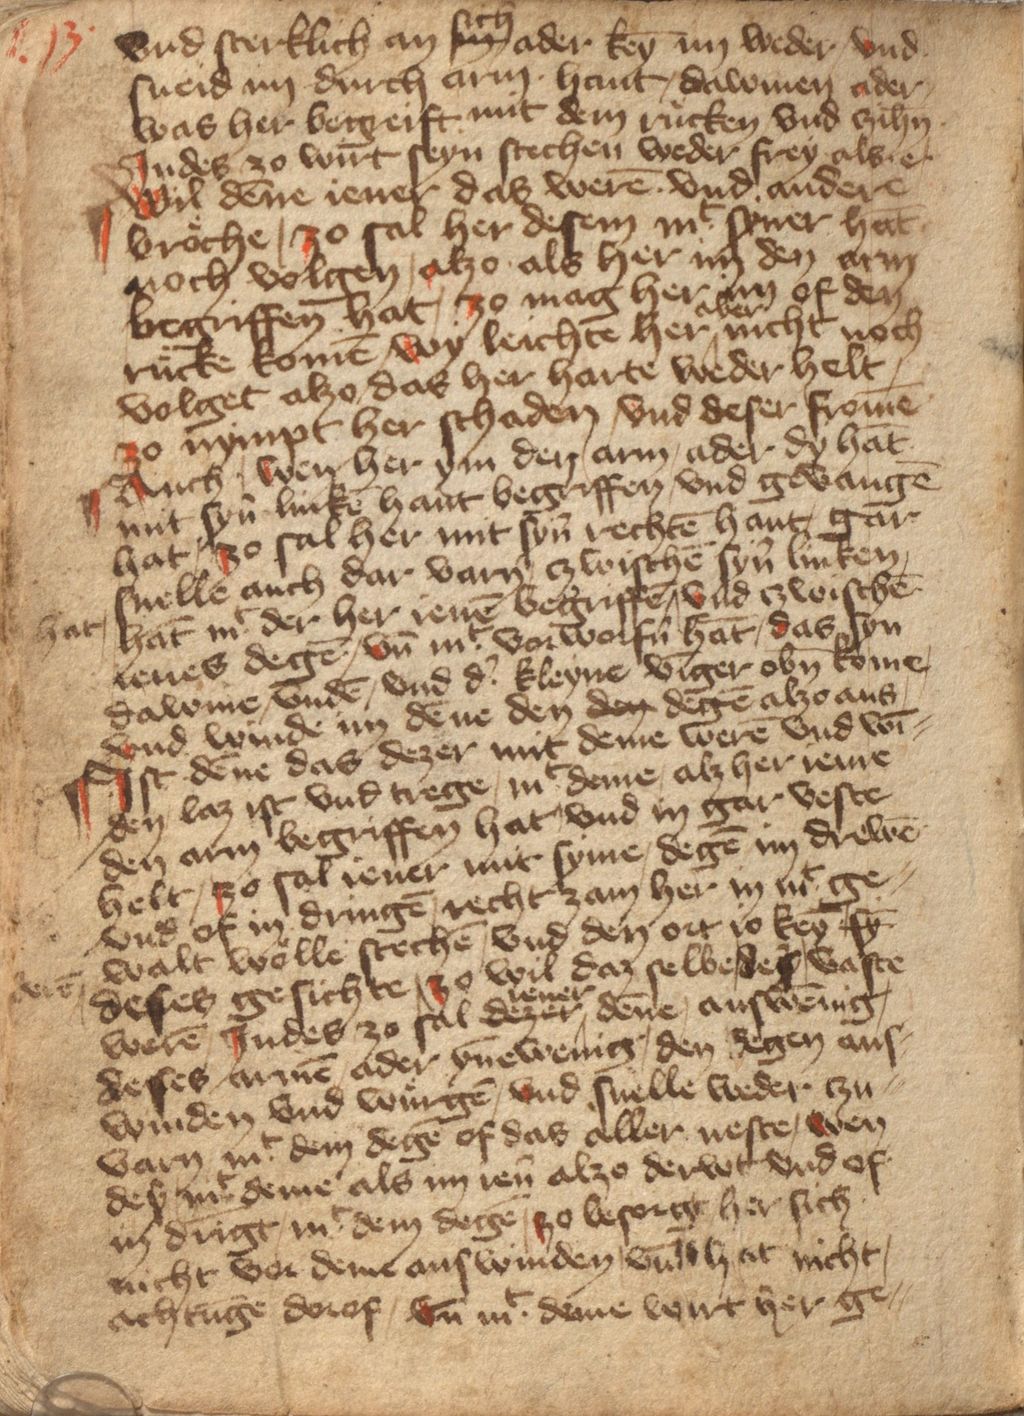 vnd sterklich an sich ader key̅ im weder vnd
sneid im durch arm hant dawmen ader
was her begreift mit dem rucken vnd czihn̅
Indes zo wirt seyn stechen weder frey als e
wil de̅ne iener das were̅ vnd andere
broche zo sal her desem mt̅ syner hat̅
noch volgen alzo als her im den arm
begriffen hat zo mag her im of den
rücke kome̅ wy leichte her aber nicht noch
volget alzo das her harte weder helt
zo nympt her schaden vnd deser frome̅
Auch wen her ym den arm ader dy hat̅
mit syn̅ linke̅ hant begriffen vnd gevange̅
hat zo sal her mit syn̅ rechte̅ hant gar
snelle auch dar varn̅ czwische̅ syn̅ linken
hat̅ mt̅ der her iene̅ begriffe̅ hat vnd czwische̅
ienes dege̅ vn̅ mt̅ vorworfn̅ hat̅ das syn
dawme vnde̅ vnd d' kleyne vi̅ger obn̅ kome
vnd winde im de̅ne den den dege̅ alzo aus
Ist de̅ne das dezer mit deme were̅ vnd wi̅-
den laz ist vnd trege mt̅ deme alz her ieme
den arm begriffen hat vnd in gar veste
helt zo sal iener mit syme dege̅ im drewe̅
vnd of in dringe̅ recht zam her in mt̅ ge-
walt wölle steche̅ vnd den ort io key̅
deses gesichte zo wil daz selbe deser vaste
were̅ Indes zo sal dezer iener de̅ne auswe̅nig
deses arme̅ ader yn̅ewenig den degen aus-
winden vnd würge̅ vnd snelle weder czu-
varn mt̅ dem dege̅ of das aller neste wen
desy̅ mt̅ deme als im ien̅ alzo derwt vnd of
in drigt mt̅ dem dege̅ zo besorgt her sich
nicht vor deme auswinden vn̅ hat nicht
achtu̅ge dorof vn̅ mt̅ deme wirt her ge-